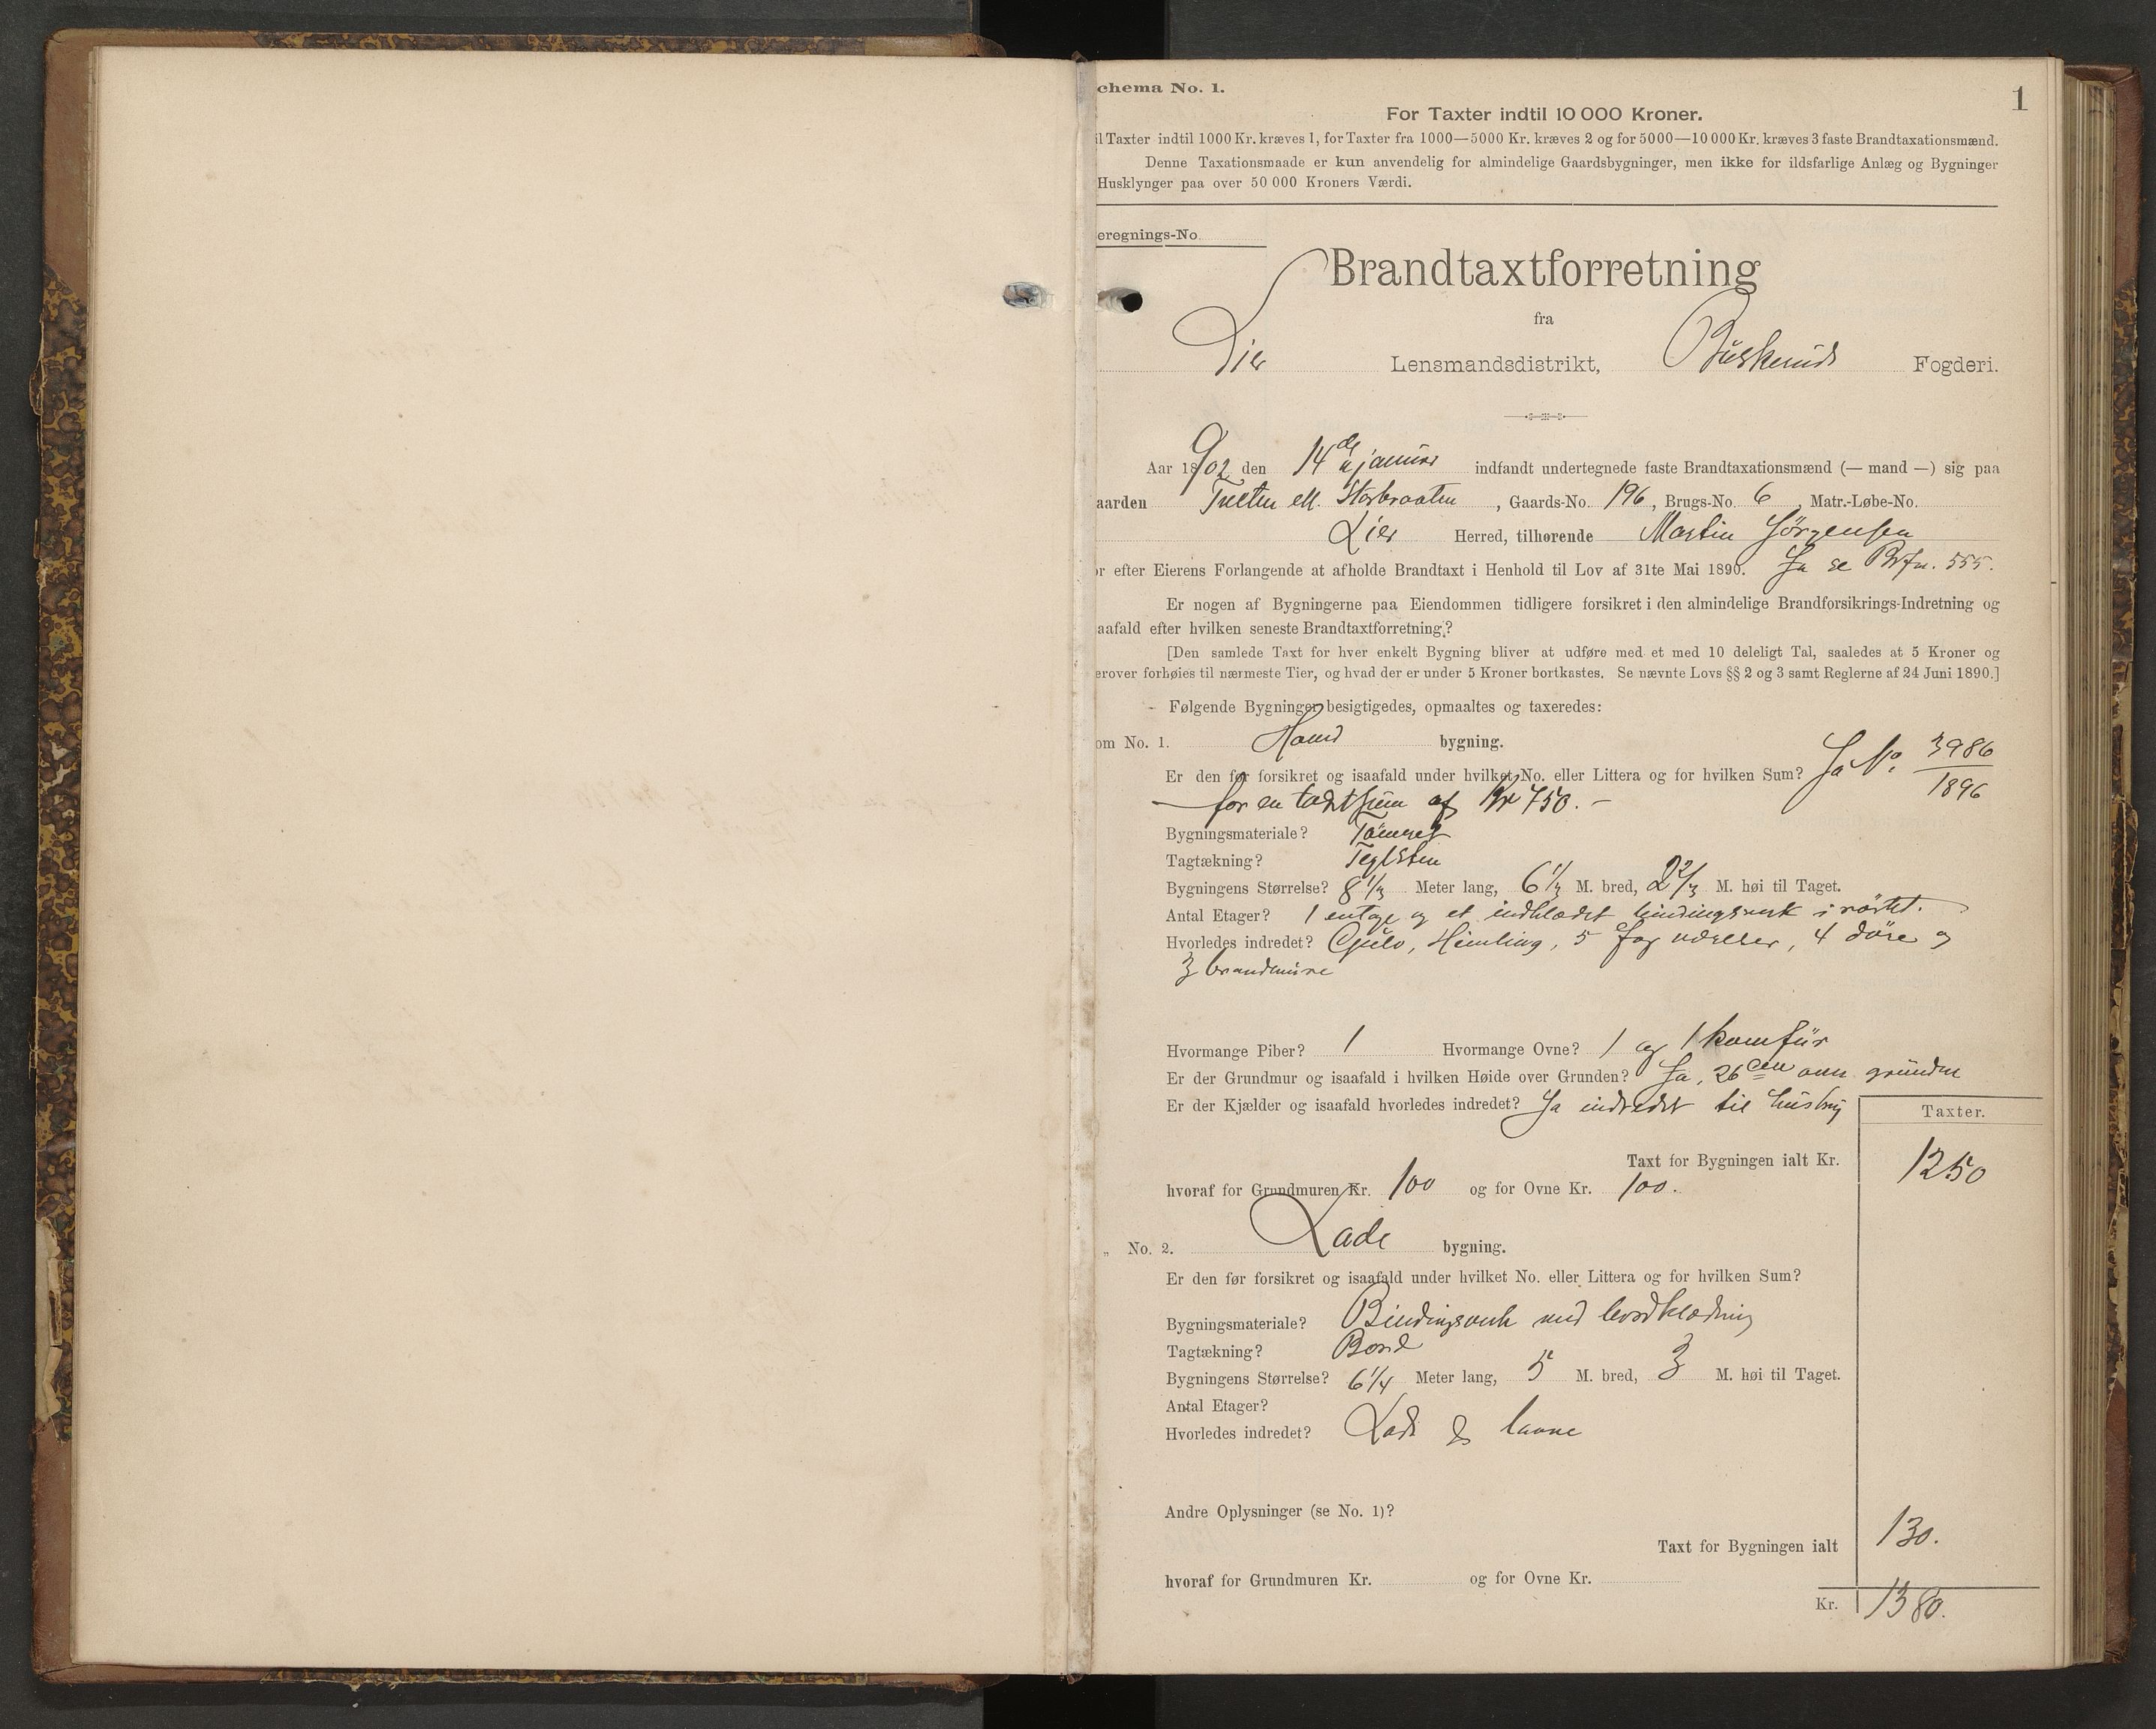 chema No. 1.
1
For Taxter indtil 10 000 Kroner.
il Taxter indtil 1000 Kr. kræves 1, for Taxter fra 1000—5000 Kr. kræves 2 og for 5000—10 000 Kr. kræves 3 faste Brandtaxationsmænd.
Denne Taxationsmaade er kun anvendelig for almindelige Gaardsbygninger, men ikke for ildsfarlige Anlæg og Bygninger
Husklynger paa over 50 000 Kroners Værdi.
eregnings-No.
Brandtaxtforretning
fra
Lier Lensmandsdistrikt, Buskeruds Fogderi.
Aar 1902 den 14de januar indfandt undertegnede faste Brandtaxationsmænd (— mand —) sig paa
aarden ell. Storbraaten, Gaards-No. 196, Brugs-No. 6, Matr.-Løbe-No.
Lier Herred, tilhørende Martin Jörgensen
or efter Eierens Forlangende at afholde Brandtaxt i Henhold til Lov af 31te Mai 1890. Ja se Brfn. 555.
Er nogen af Bygningerne paa Eiendommen tidligere forsikret i den almindelige Brandforsikrings-Indretning og
aafald efter hvilken seneste Brandtaxtforretning?
[Den samlede Taxt for hver enkelt Bygning bliver at udføre med et med 10 deleligt Tal, saaledes at 5 Kroner og
erover forhøies til nærmeste Tier, og hvad der er under 5 Kroner bortkastes. Se nævnte Lovs §§ 2 og 3 samt Reglerne af 24 Juni 1890.]
Følgende Bygninger besigtigedes, opmaaltes og taxeredes:
om No. 1. Hoved bygning.
Er den før forsikret og isaafald under hvilket No. eller Littera og for hvilken Sum? Ja No. 3986/1896
for en taxtsum af Kr 750. —
Bygningsmateriale? Tömret
Tagtækning? Teglsten
Bygningens Størrelse? 8 1/3 Meter lang, 6 1/3 M. bred, 2 2/3 M. høi til Taget.
Antal Etager? 1 entage og et indklædt bindingsverk i röstet.
Hvorledes indredet? Gulv, Himling, 5 fag vduer, 4 döre og
3 brandmure
Hvormange Piber? 1 Hvormange Ovne? 1 og 1 komfür
Er der Grundmur og isaafald i hvilken Høide over Grunden? Ja, 26 cm over grunden
Er der Kjælder og isaafald hvorledes indredet? Ja indredet til husbrug
Taxter.
Taxt for Bygningen ialt Kr. 1250
hvoraf for Grundmuren Kr. 100 og for Ovne Kr. 100.
„ No. 2. Lade bygning.
Er den før forsikret og isaafald under hvilket No. eller Littera og for hvilken Sum?
Bygningsmateriale? Bindingsverk med bordklædning
Tagtækning? Bord
Bygningens Størrelse? 6 1/4 Meter lang, 5 M. bred, 3 M. høi til Taget.
Antal Etager?
Hvorledes indredet? Lade & laave
Andre Oplysninger (se No. 1)?
Taxt for Bygningen ialt 130.
hvoraf for Grundmuren Kr. og for Ovne Kr.
Kr. 1380.